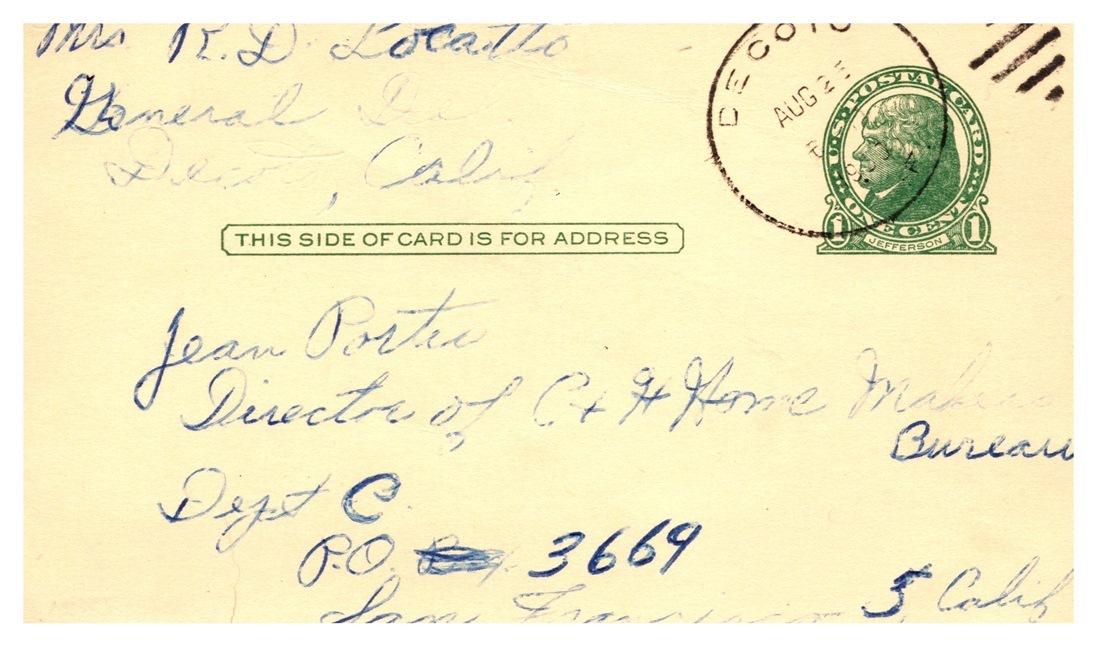 Mrs R. D. Locatto
General De
Decoto, Calif.
DECOTO
AUG 25
U.S. POSTAL CARD
ONE CENT
1 JEFFERSON 1
THIS SIDE OF CARD IS FOR ADDRESS
Jean Porter
Director of C + H Home Makers
Bureau
Dept C.
P.O. 3669
San Francisco 5 Calif